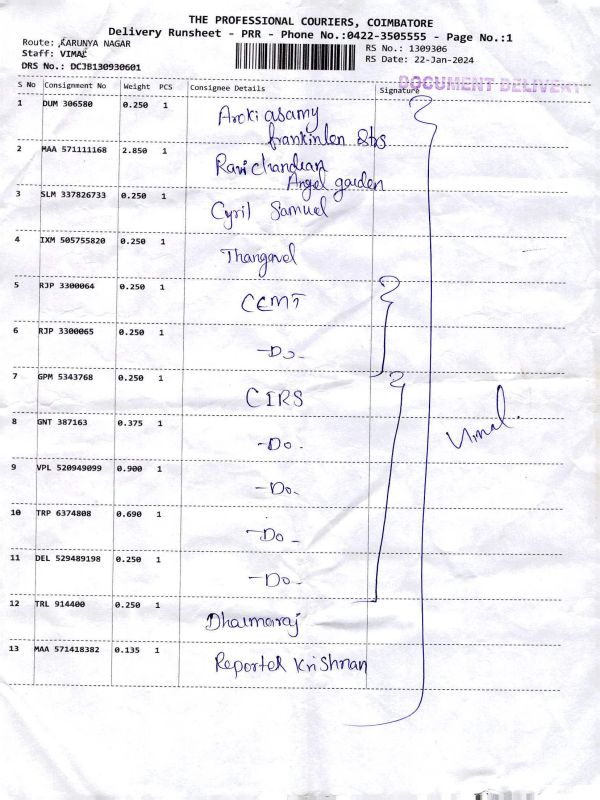 THE PROFESSIONAL COURIERS, COIMBATORE
Delivery Runsheet - PRR - Phone No.:0422-3505555 - Page No.:1
Route: KARUNYA NAGAR
Staff: VIMAL
DRS No.: DCJB130930601
RS No.: 1309306
RS Date: 22-Jan-2024
DOCUMENT DELIVERY
S No Consignment No Weight PCS Consignee Details Signature
1 DUM 306580 0.250 1 Arokiasamy
frankinlen
2 MAA 571111168 2.850 1 Ravichandran
Angel garden
3 SLM 337826733 0.250 1 Cyril Samuel
4 IXM 505755820 0.250 1 Thangavel
5 RJP 3300064 0.250 1 CEMT
6 RJP 3300065 0.250 1 -Do-
7 GPM 5343768 0.250 1 CIRS
8 GNT 387163 0.375 1 -Do-
9 VPL 520949099 0.900 1 -Do-
10 TRP 6374808 0.690 1 -Do-
11 DEL 529489198 0.250 1 -Do-
12 TRL 914400 0.250 1 Dharmaraj
13 MAA 571418382 0.135 1 Reporter Krishnan
Vimal.